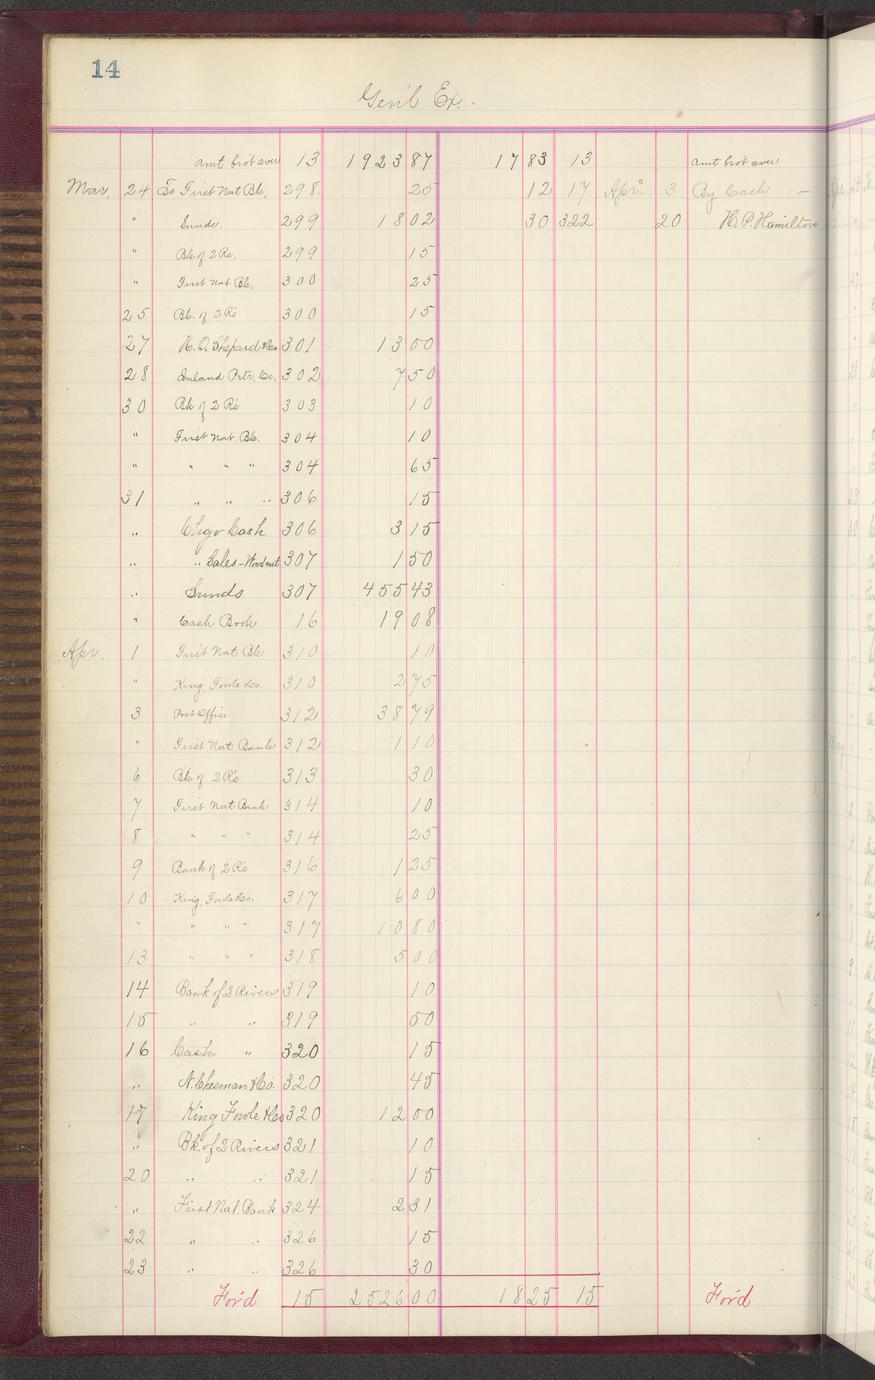 14
Gen'l Ex.
amt bro't over 13 1923 87 17 83 13 amt bro't over
Mar. 24 To First Nat Bk. 298 25 12 17 Apr. 3 By Cash
" Sunds. 299 18 02 30 322 20 H. P. Hamilton
" Bk of 2 Rs. 299 15
" First Nat Bk. 300 25
25 Bk. of 2 Rs 300 15
27 H. O. Shepard & Co 301 13 00
28 Inland Prtr. Co. 302 7 50
30 Bk of 2 Rs 303 10
" First Nat. Bk. 304 10
" " " " 304 65
31 " " " 306 15
" Chgo Cash 306 3 15
" " Sales - 307 1 50
" Sunds 307 455 43
" Cash Book 16 19 08
Apr. 1 First Nat Bk 310 10
" King, Fowle & Co. 310 2 75
3 Post Office 312 38 79
" First Nat Bank 312 1 10
6 Bk of 2 Rs 313 30
7 First Nat Bank 314 10
8 " " " 314 25
9 Bank of 2 Rs 316 1 25
10 King, Fowle & Co. 317 6 00
" " " " 317 10 80
13 " " " 318 5 00
14 Bank of 2 Rivers 319 10
15 " " 319 50
16 Cash " 320 15
" N. Chesman & Co. 320 45
17 King Fowle & Co 320 12 00
" Bk. of 2 Rivers 321 10
20 " " 321 15
" First Nat. Bank 324 2 31
22 " " 326 15
23 " " 326 30
For'd 15 2526 00 18 25 15 For'd